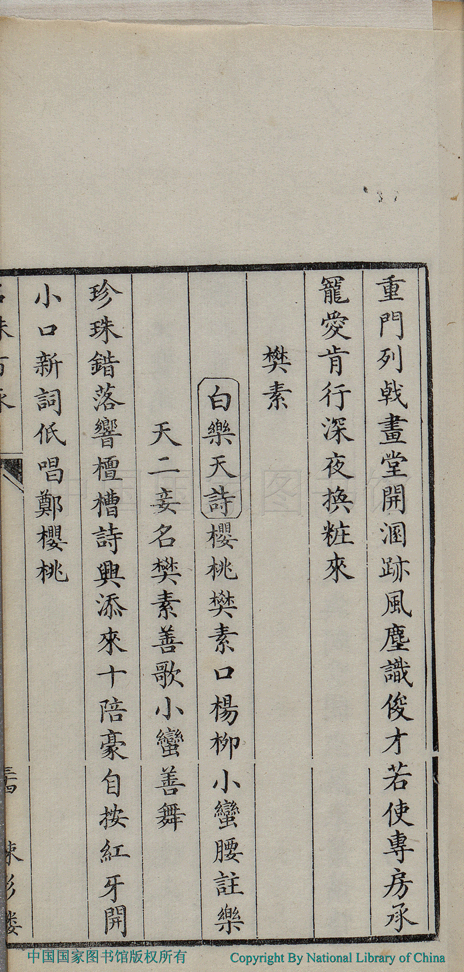 重門列戟畫堂開溷跡風塵識俊才若使專房承
寵愛肯行深夜換粧來
樊素
白樂天詩櫻桃樊素口楊柳小蠻腰註樂
天二妾名樊素善歌小蠻善舞
珍珠錯落響檀槽詩興添來十陪豪自按紅牙開
小口新詞低唱鄭櫻桃
中国国家图书馆版权所有
Copyright By National Library of China